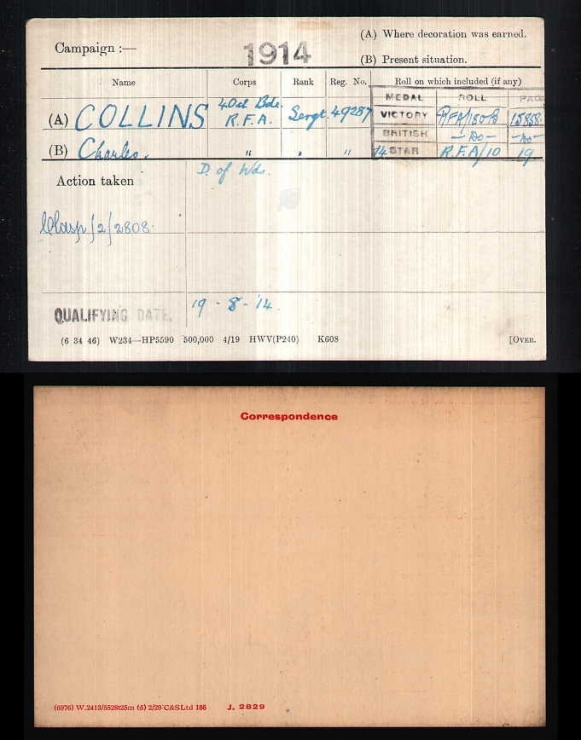 (A) Where decoration was earned.
Campaign :—
1914
(B) Present situation.
Name Corps Rank Reg. No. Roll on which included (if any)
MEDAL ROLL PAGE
(A) COLLINS 40th Bde. R.F.A. Sergt 49287
VICTORY RFA/150B
BRITISH —Do— —Do—
(B) Charles. " " "
14 STAR R.F.A/10 19
Action taken
D. of Wds.
Clasp/2/2808.
QUALIFYING DATE. 19 - 8 - 14.
(6 34 46) W234—HP5590 500,000 4/19 HWV(P240) K608 [OVER.
Correspondence
(6976) W.2413/ (5) 2/29 CASLtd 166 J. 2829